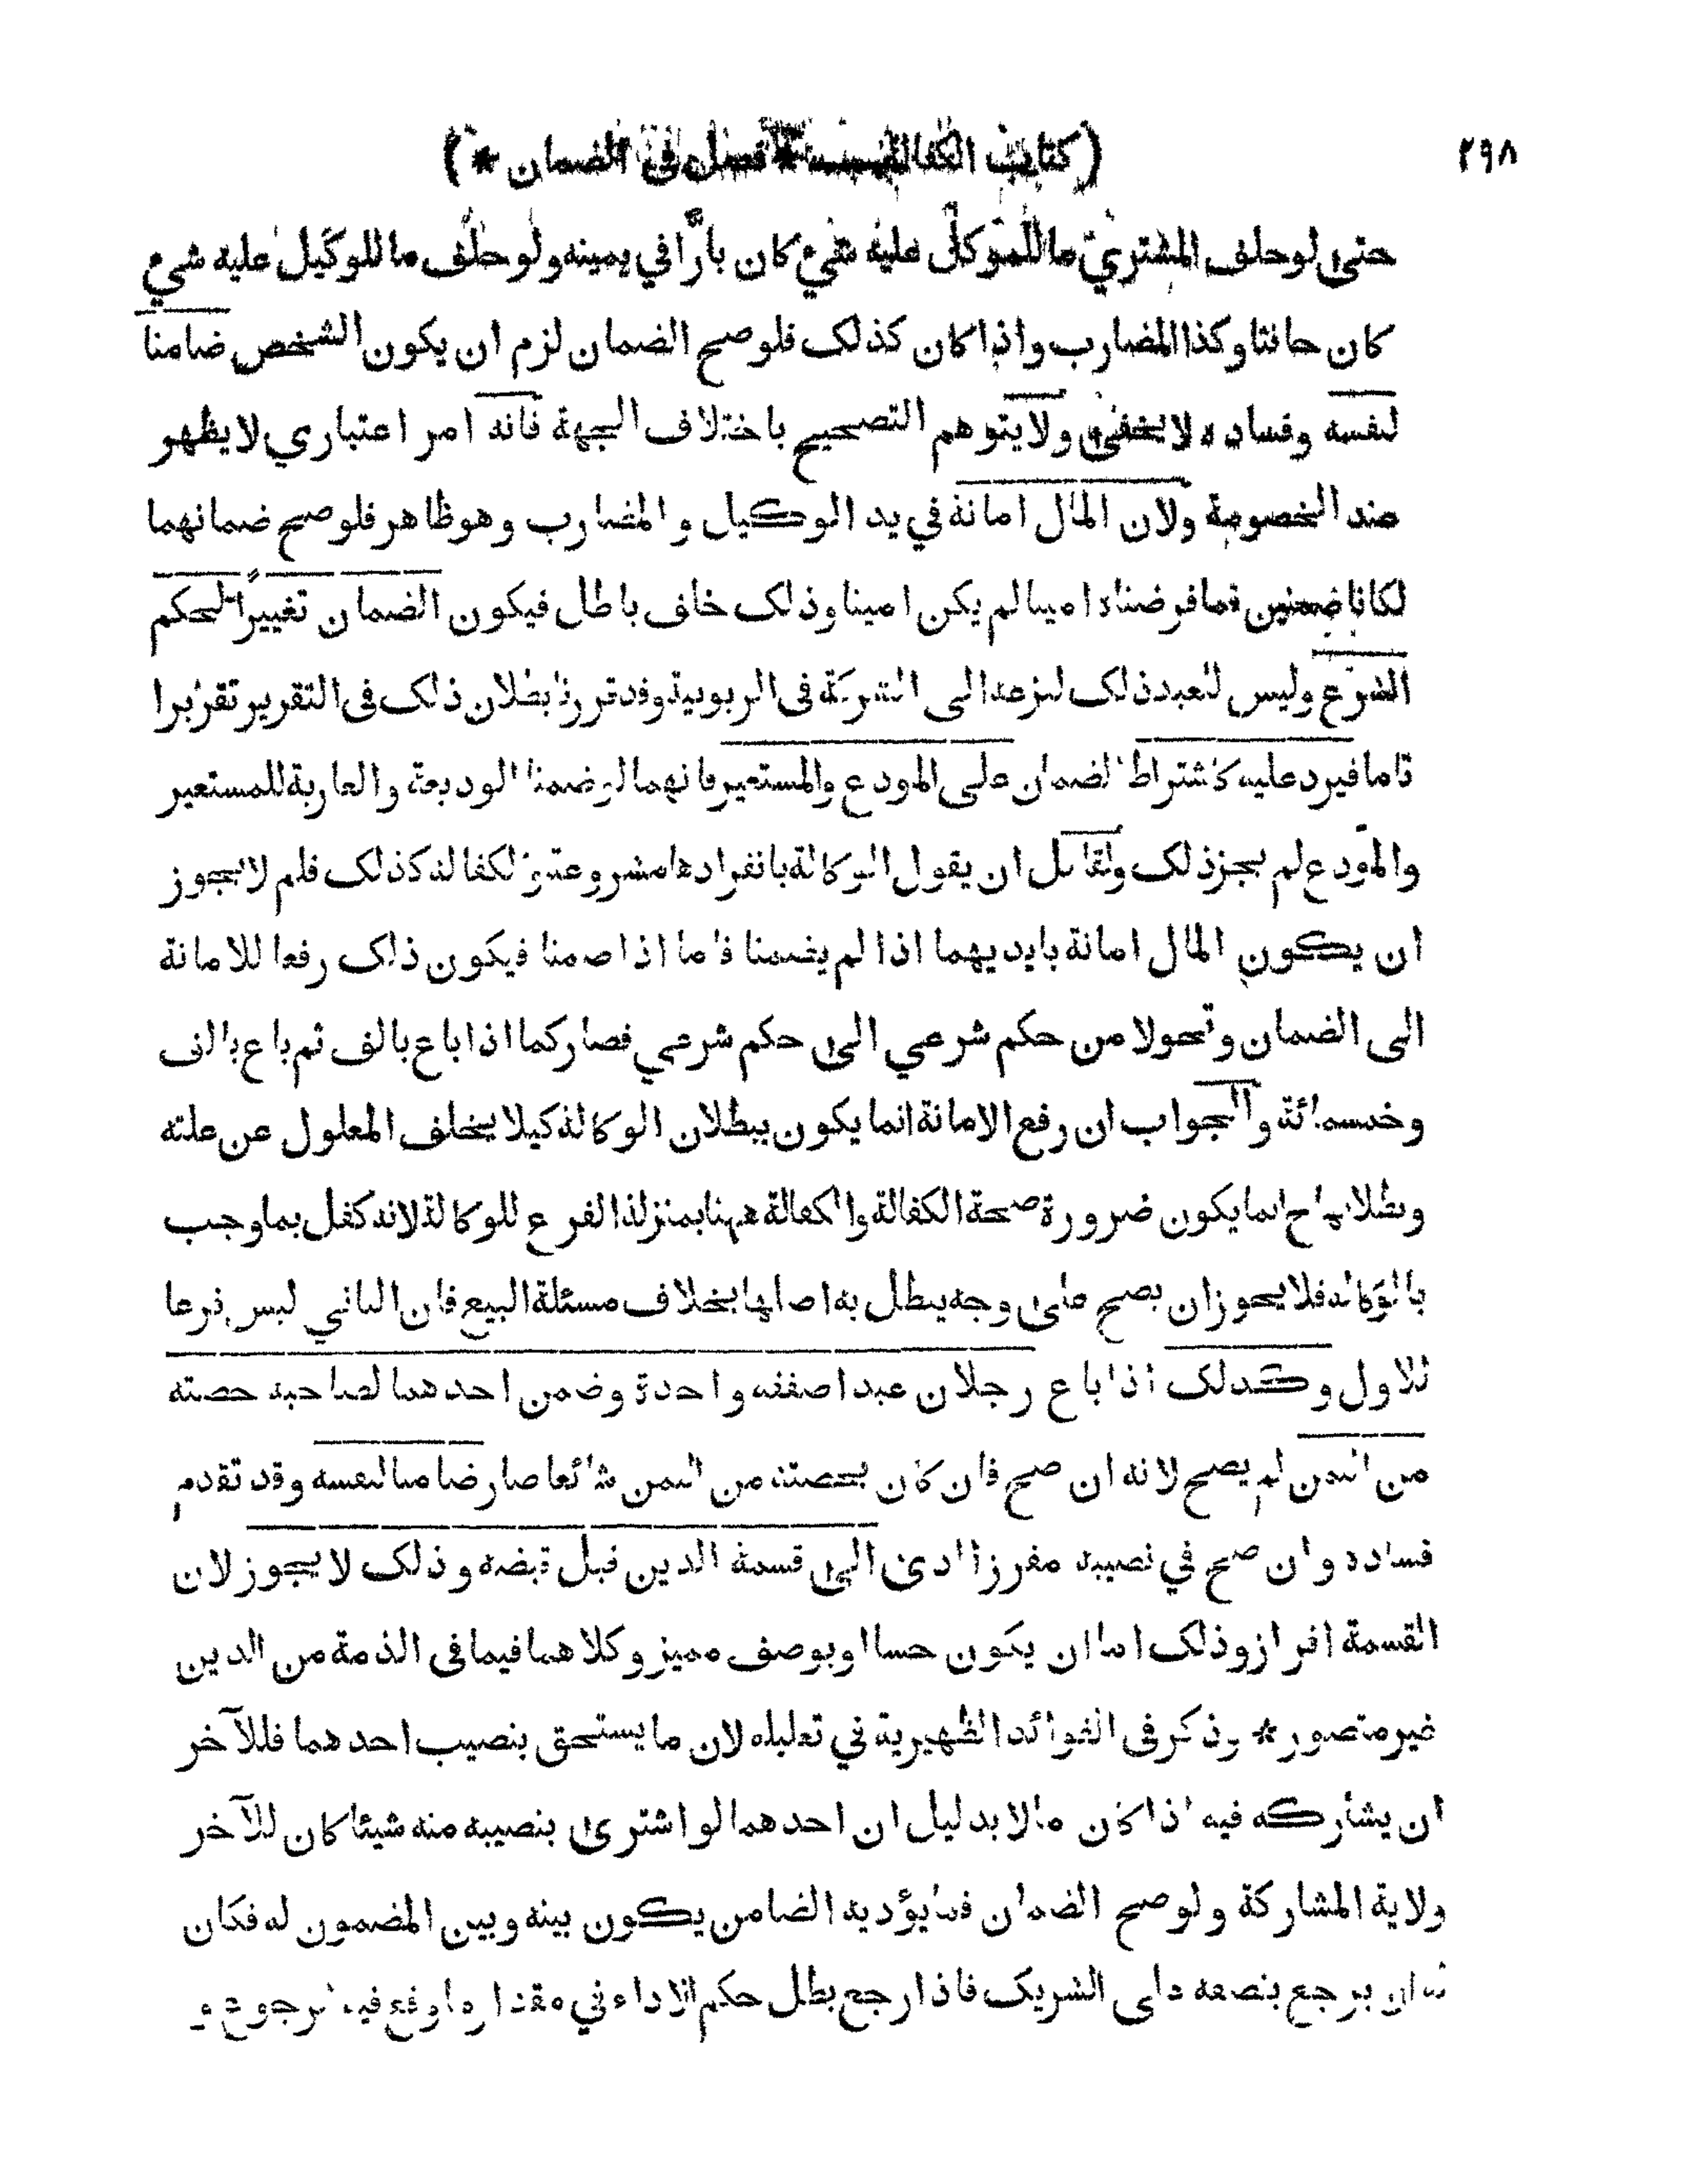 ٢٩٨
(كتاب الكفالة * فصل في الضمان *)
حتى لو حلف المشتري ما للموكل عليه شيء كان بارًّا في يمينه ولو حلف ما للوكيل عليه شيء
كان حانثا وكذا المضارب واذا كان كذلك فلو صح الضمان لزم ان يكون الشخص ضامنا
لنفسه وفساده لا يخفى ولا يتوهم التصحيح باختلاف الجهة فانه امر اعتباري لا يظهر
عند الخصومة ولان المال امانة في يد الوكيل و المضارب وهو ظاهر فلو صح ضمانهما
لكانا ضمنين فما فرضناه امينا لم يكن امينا وذلك خلف باطل فيكون الضمان تغييرًا لحكم
الشرع وليس للعبد ذلك لنزعه الى الشركة في الربوبية وقد قررنا بطلان ذلك في التقرير تقريرا
تاما فيرد عليه كاشتراط الضمان على المودع والمستعير فانهما لو ضمنا الوديعة والعارية للمستعير
والمودع لم يجز ذلك ولقائل ان يقول الوكالة بانفرادها مشروعة والكفالة كذلك فلم لا يجوز
ان يكون المال امانة بايديهما اذا لم يضمنا فاما اذا ضمنا فيكون ذلك رفعا للامانة
الى الضمان وتحولا من حكم شرعي الى حكم شرعي فصار كما اذا باع بالف ثم باع بالف
وخمسمائة والجواب ان رفع الامانة انما يكون ببطلان الوكالة كيلا يخلف المعلول عن علته
وبطلانها ح انما يكون ضرورة صحة الكفالة والكفالة ههنا بمنزلة الفرع للوكالة لانه كفل بما وجب
بالوكالة فلا يجوز ان يصح على وجه يبطل به اصلها بخلاف مسئلة البيع فان الثاني ليس فرعا
للاول وكذلك اذا باع رجلان عبدا صفقة واحدة وضمن احدهما لصاحبه حصته
من الثمن لم يصح لانه ان صح فان كان بحصته من الثمن شائعا صار ضامنا لنفسه وقد تقدم
فساده وان صح في نصيبه مفرزا ادى الى قسمة الدين قبل قبضه وذلك لا يجوز لان
القسمة افراز وذلك اما ان يكون حسا او بوصف مميز وكلاهما فيما في الذمة من الدين
غير متصور * وذكر في الفوائد الظهيرية في تعليله لان ما يستحق بنصيب احدهما فللآخر
ان يشاركه فيه اذا كان مالا بدليل ان احدهما لو اشترى بنصيبه منه شيئا كان للآخر
ولاية المشاركة ولو صح الضمان فما يؤديه الضامن يكون بينه وبين المضمون له فكان
له ان يرجع بنصفه على الشريك فاذا رجع بطل حكم الاداء في مقدار ما وقع فيه الرجوع